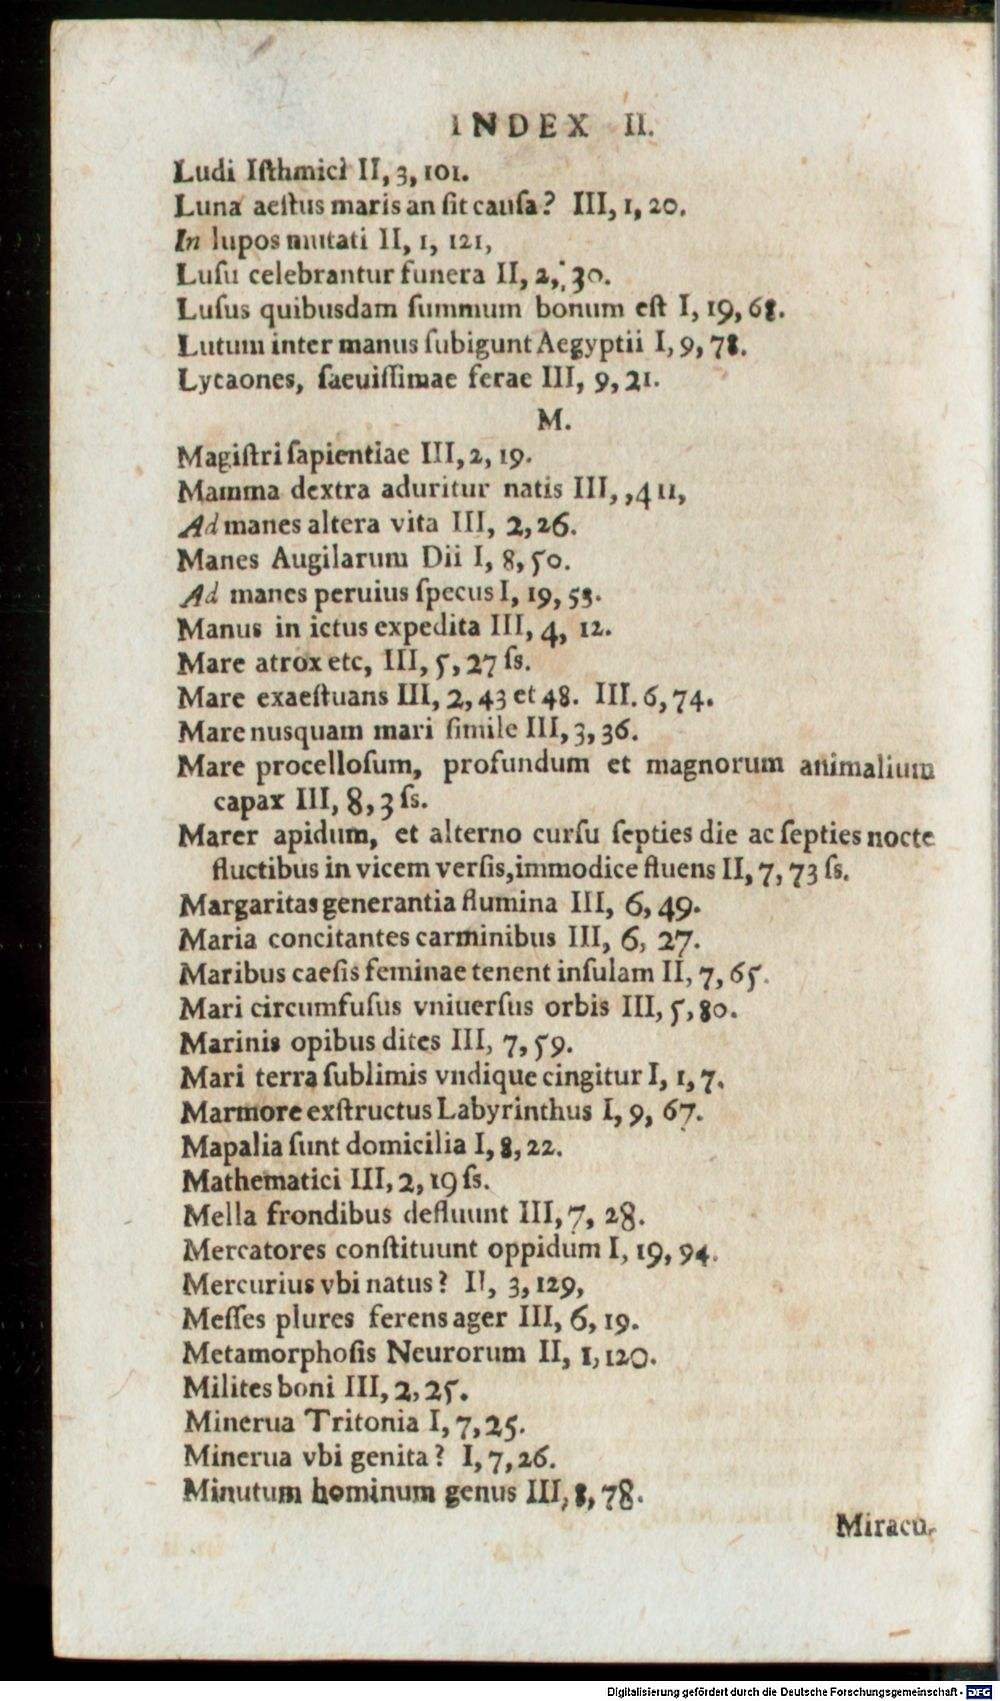 INDEX II.
Ludi Iſthmici II, 3, 101.
Luna aeſtus maris an ſit cauſa? III, 1, 20.
In lupos mutati II, 1, 121,
Luſu celebrantur funera II, 2, 30.
Luſus quibusdam ſummum bonum eſt I, 19, 68.
Lutum inter manus ſubigunt Aegyptii I, 9, 78.
Lycaones, ſaeuiſſimae ferae III, 9, 21.
M.
Magiſtri ſapientiae III, 2, 19.
Mamma dextra aduritur natis III, ,4 11,
Ad manes altera vita III, 2, 26.
Manes Augilarum Dii I, 8, 50.
Ad manes peruius ſpecus I, 19, 53.
Manus in ictus expedita III, 4, 12.
Mare atrox etc, III, 5, 27 ſs.
Mare exaeſtuans III, 2, 43 et 48. III. 6, 74.
Mare nusquam mari ſimile III, 3, 36.
Mare procelloſum, profundum et magnorum animalium
capax III, 8, 3 ſs.
Marer apidum, et alterno curſu ſepties die ac ſepties nocte
fluctibus in vicem verſis, immodice fluens II, 7, 73 ſs.
Margaritas generantia flumina III, 6, 49.
Maria concitantes carminibus III, 6, 27.
Maribus caeſis feminae tenent inſulam II, 7, 65.
Mari circumfuſus vniuerſus orbis III, 5, 80.
Marinis opibus dites III, 7, 59.
Mari terra ſublimis vndique cingitur I, 1, 7.
Marmore exſtructus Labyrinthus I, 9, 67.
Mapalia ſunt domicilia I, 8, 22.
Mathematici III, 2, 19 ſs.
Mella frondibus defluunt III, 7, 28.
Mercatores conſtituunt oppidum I, 19, 94.
Mercurius vbi natus? II, 3, 129,
Meſſes plures ferens ager III, 6, 19.
Metamorphoſis Neurorum II, 1, 120.
Milites boni III, 2, 25.
Minerua Tritonia I, 7, 25.
Minerua vbi genita? I, 7, 26.
Minutum hominum genus III, 8, 78.
Miracu-
Digitalisierung gefördert durch die Deutsche Forschungsgemeinschaft - DFG